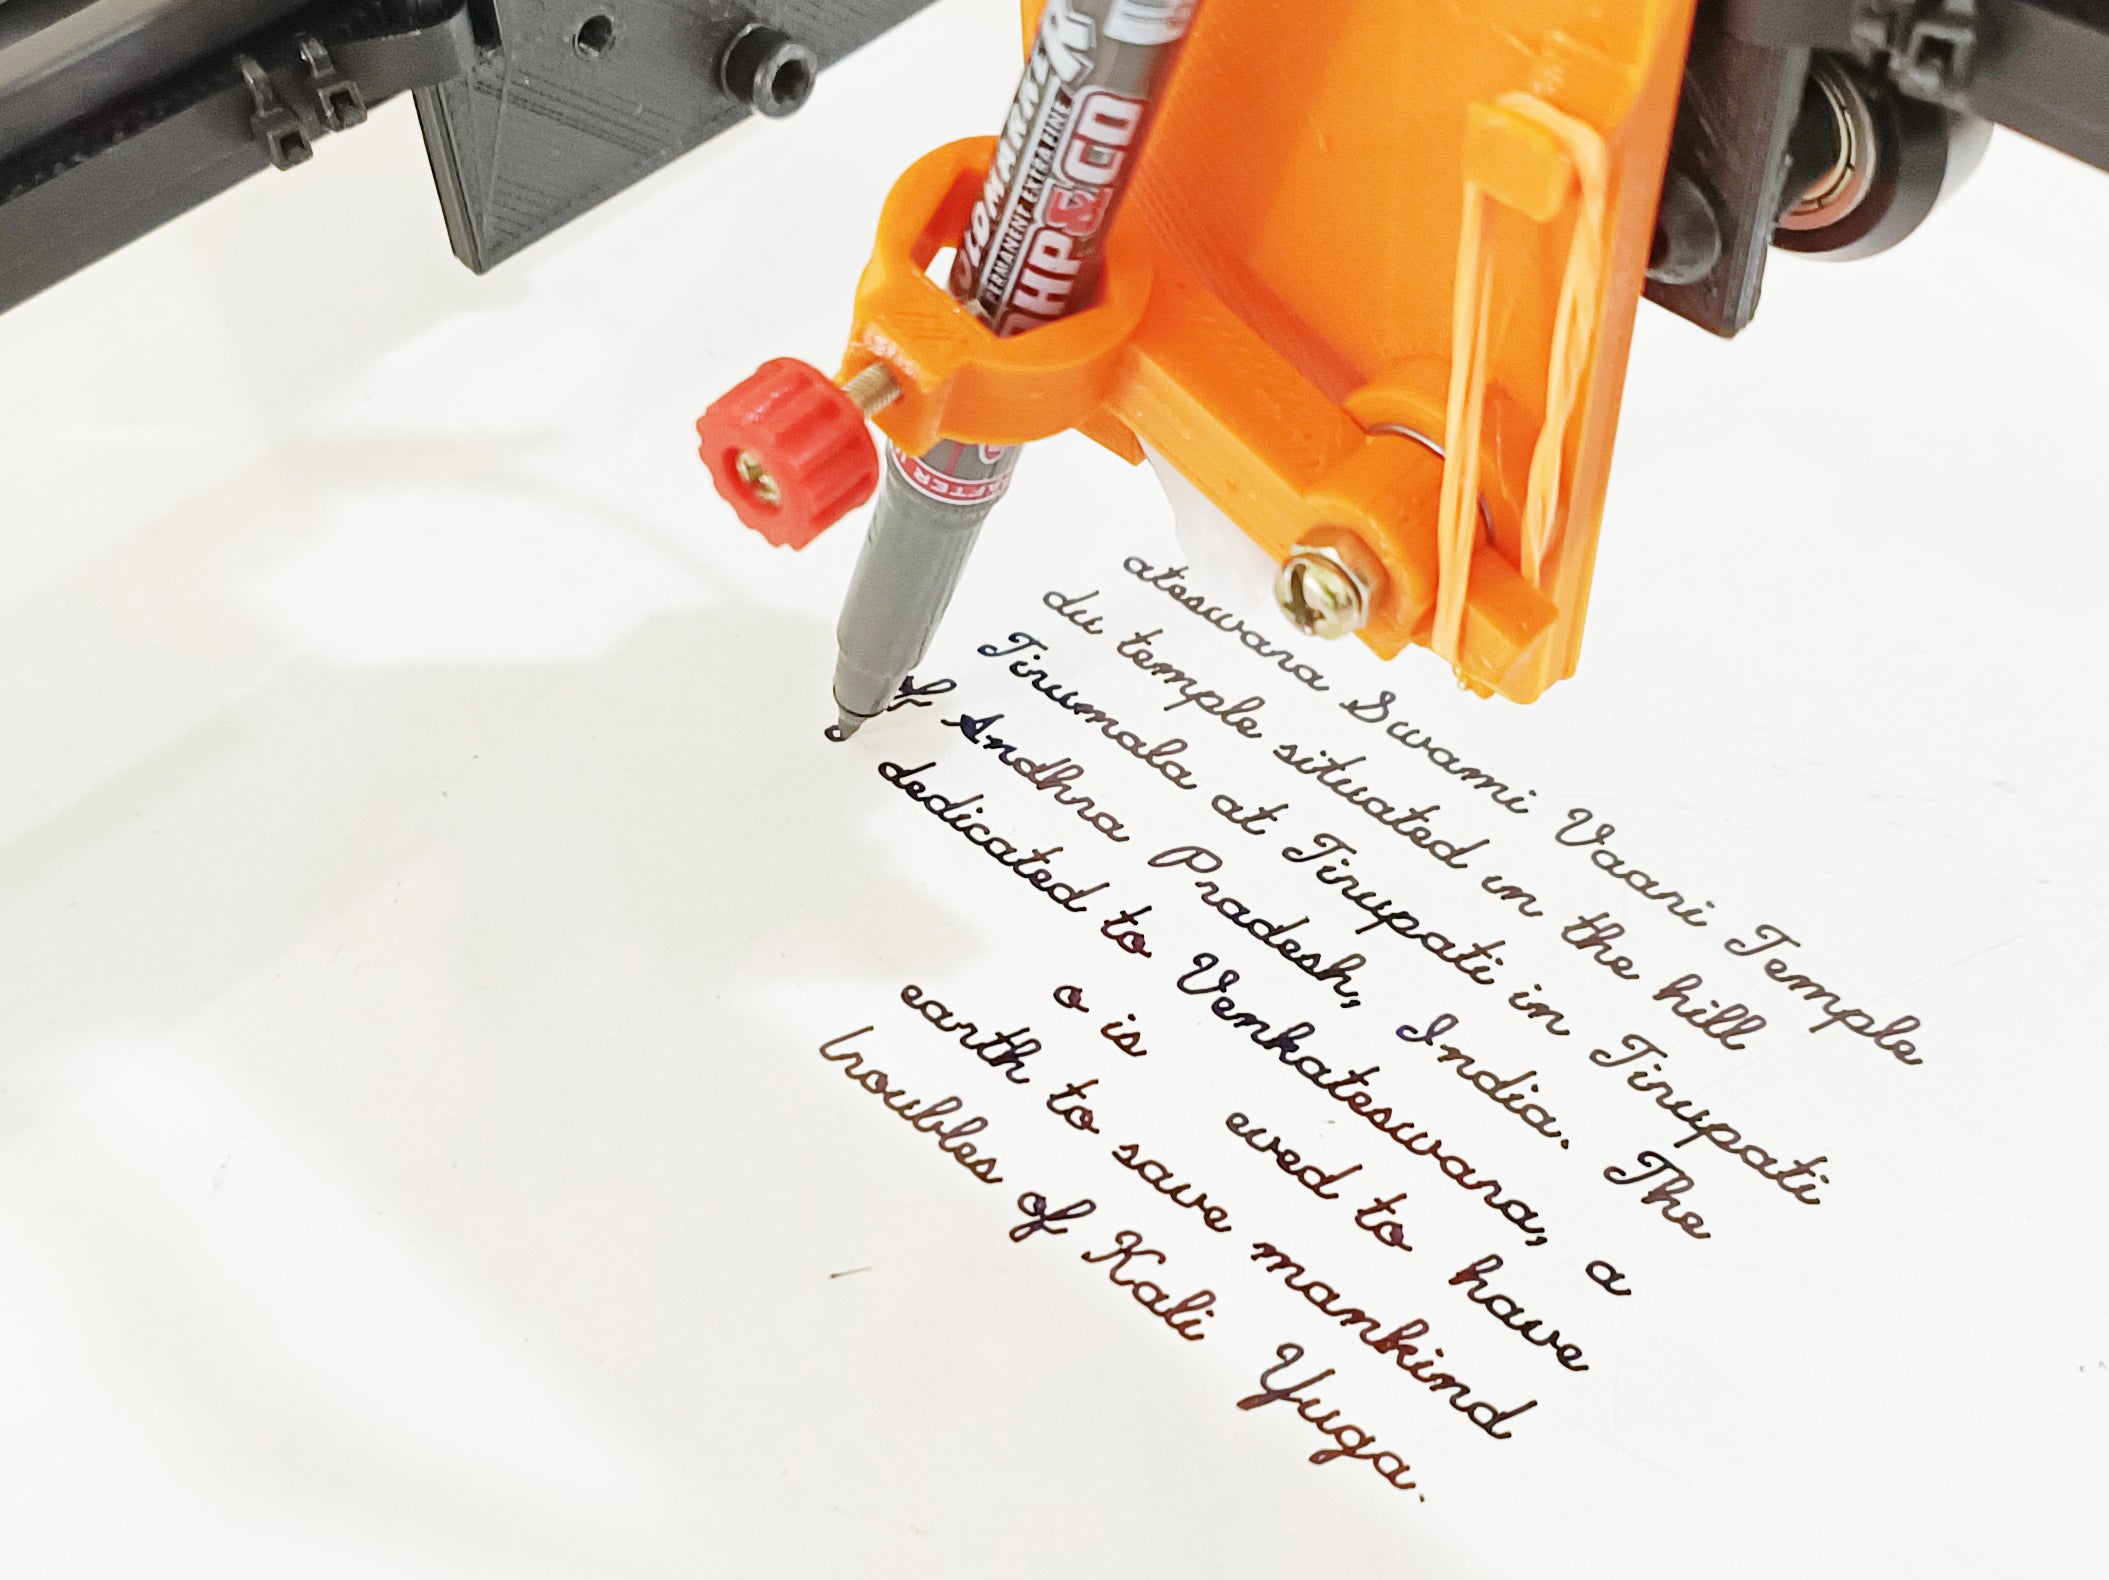 OHP&CD
PERMANENT EXTRAFINE
AFTER
ateswara Swami Vaari Temple
du temple situated in the hill
Tirumala at Tirupati in Tirupati
of Andhra Pradesh, India. The
dedicated to Venkateswara, a
o is eved to have
earth to save mankind
troubles of Kali Yuga.